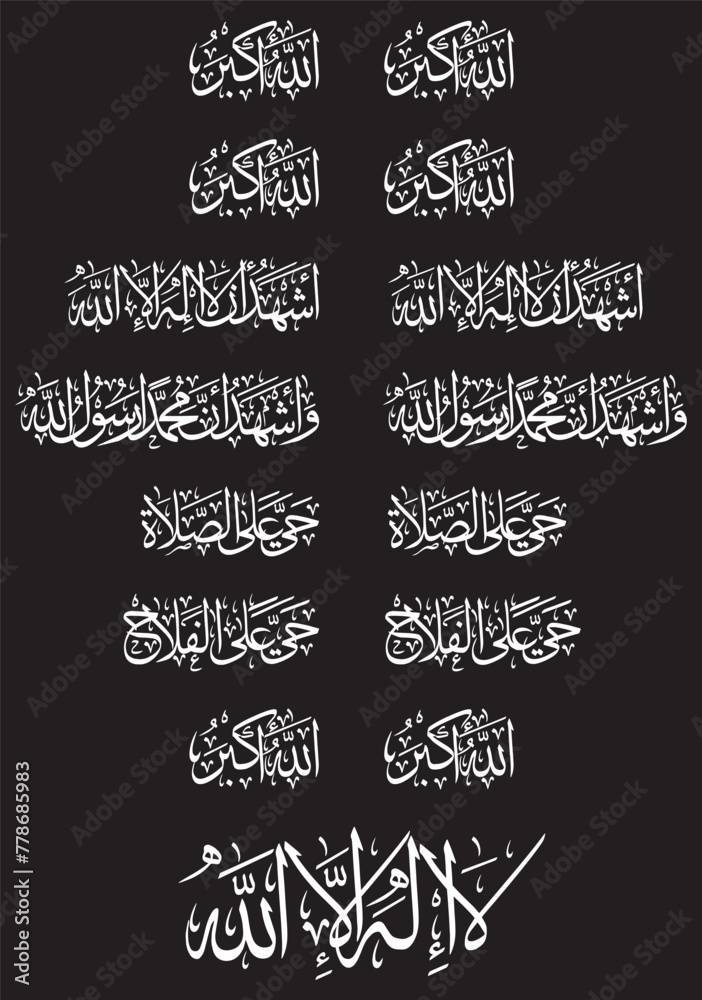 اللهُ أَكْبَرُ اللهُ أَكْبَرُ
اللهُ أَكْبَرُ اللهُ أَكْبَرُ
أشهَدُ أن لا إله إلاّ اللهُ أشهَدُ أن لا إله إلاّ اللهُ
وَأَشهَدُ أَنَّ مُحَمَّدًا رَسُولُ اللهُ وَأَشهَدُ أَنَّ مُحَمَّدًا رَسُولُ اللهُ
حَيَّ عَلَى الصَّلَاة حَيَّ عَلَى الصَّلَاة
حَيَّ عَلَى الفَلَاح حَيَّ عَلَى الفَلَاح
اللهُ أَكْبَرُ اللهُ أَكْبَرُ
لَا إِلهَ إِلاَّ اللهُ
Adobe Stock | #778685983